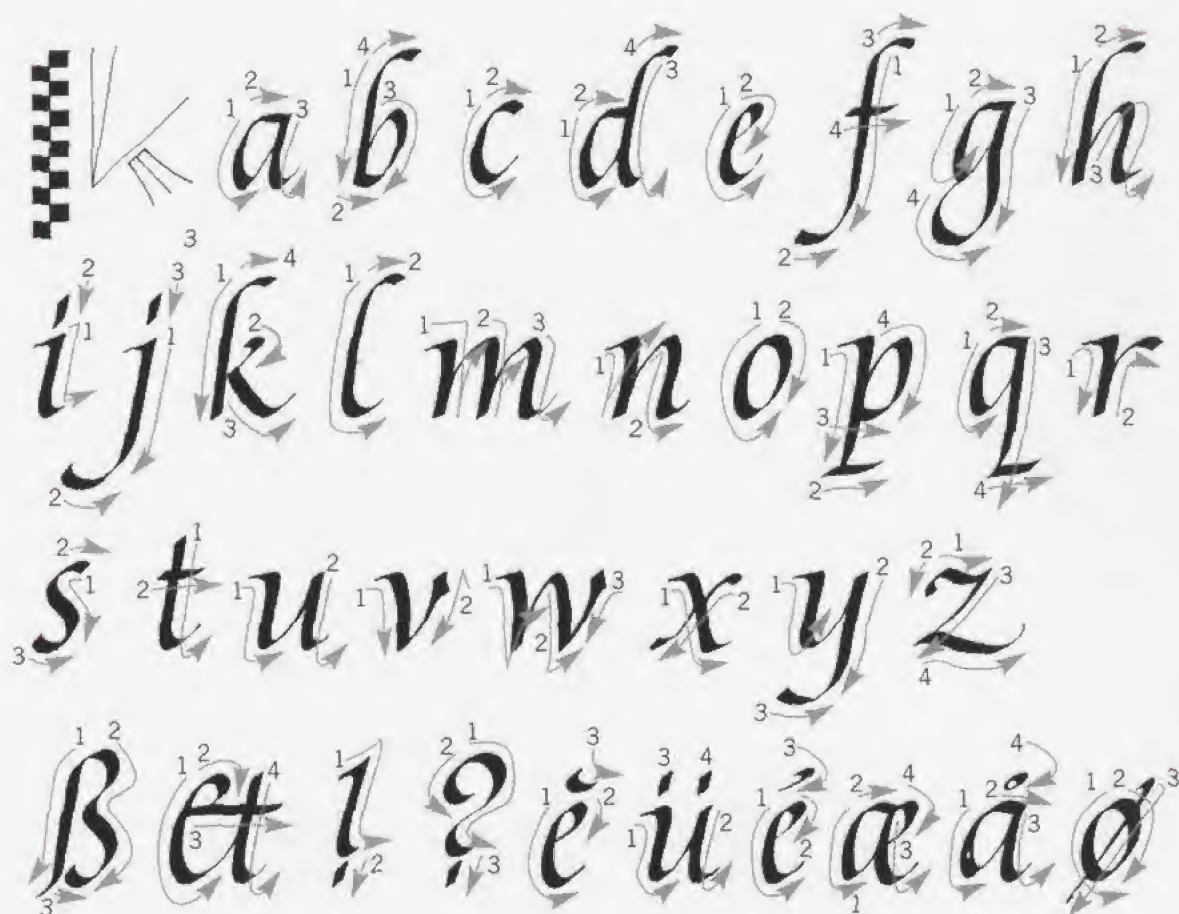 a b c d e f g h
i j k l m n o p q r
s t u v w x y z
ß & ! ? ĕ ü é æ å ø